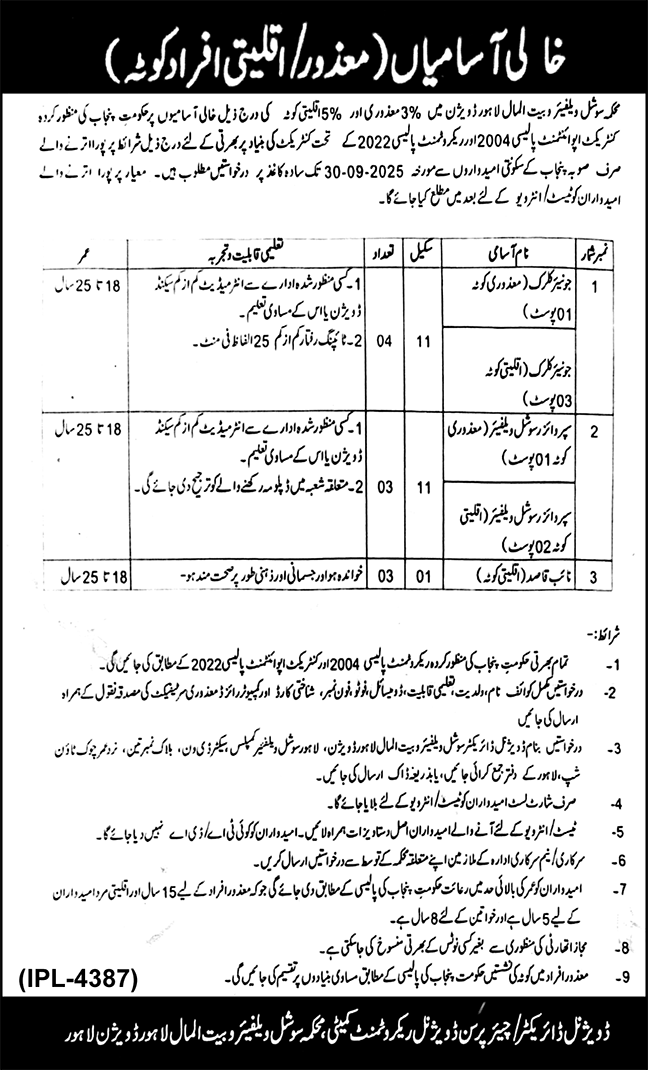 خالی آسامیاں (معذور/اقلیتی افراد کوٹہ)
محکمہ سوشل ویلفیئر و بیت المال لاہور ڈویژن میں 3% معذوری اور 5% اقلیتی کوٹہ کی درج ذیل خالی آسامیوں پر حکومت پنجاب کی منظور کردہ
کنٹریکٹ اپوائنٹمنٹ پالیسی 2004 اور ریکروٹمنٹ پالیسی 2022 کے تحت کنٹریکٹ کی بنیاد پر بھرتی کے لئے درج ذیل شرائط پر پورا اترنے والے
صرف صوبہ پنجاب کے سکونتی امیدواروں سے مورخہ 30-09-2025 تک سادہ کاغذ پر درخواستیں مطلوب ہیں۔ معیار پر پورا اترنے والے
امیدواران کو ٹیسٹ/انٹرویو کے لئے بعد میں مطلع کیا جائے گا۔
نمبر شمار نام آسامی سکیل تعداد تعلیمی قابلیت و تجربہ عمر
1 جونیئر کلرک (معذوری کوٹہ 1۔ کسی منظور شدہ ادارے سے انٹرمیڈیٹ کم از کم سیکنڈ 18 تا 25 سال
01 پوسٹ) ڈویژن یا اس کے مساوی تعلیم۔
11 04 2۔ ٹائپنگ رفتار کم از کم 25 الفاظ فی منٹ۔
جونیئر کلرک (اقلیتی کوٹہ
03 پوسٹ)
2 سپروائزر سوشل ویلفیئر (معذوری 1۔ کسی منظور شدہ ادارے سے انٹرمیڈیٹ کم از کم سیکنڈ 18 تا 25 سال
کوٹہ 01 پوسٹ) ڈویژن یا اس کے مساوی تعلیم۔
11 03 2۔ متعلقہ شعبہ میں ڈپلومہ رکھنے والے کو ترجیح دی جائے گی۔
سپروائزر سوشل ویلفیئر (اقلیتی
کوٹہ 02 پوسٹ)
3 نائب قاصد (اقلیتی کوٹہ) 01 03 خواندہ ہو اور جسمانی اور ذہنی طور پر صحت مند ہو۔ 18 تا 25 سال
شرائط:-
1- تمام بھرتی حکومت پنجاب کی منظور کردہ ریکروٹمنٹ پالیسی 2004 اور کنٹریکٹ اپوائنٹمنٹ پالیسی 2022 کے مطابق کی جائیں گی۔
2- درخواستیں مکمل کوائف نام، ولدیت، تعلیمی قابلیت، ڈومیسائل، فوٹو، فون نمبر، شناختی کارڈ اور کمپیوٹرائزڈ معذوری سرٹیفیکیٹ کی مصدقہ نقول کے ہمراہ
ارسال کی جائیں
3- درخواستیں بنام ڈویژنل ڈائریکٹر سوشل ویلفیئر و بیت المال لاہور ڈویژن، لاہور سوشل ویلفیئر کمپلیکس، سیکٹر ڈی ون، بلاک نمبر تین، نزد عمر چوک ٹاؤن
شپ، لاہور کے دفتر جمع کرائی جائیں، یا بذریعہ ڈاک ارسال کی جائیں۔
4- صرف شارٹ لسٹ امیدواران کو ٹیسٹ/انٹرویو کے لئے بلایا جائے گا۔
5- ٹیسٹ/انٹرویو کے لئے آنے والے امیدواران اصل دستاویزات ہمراہ لائیں۔ امیدواران کو کوئی ٹی اے/ڈی اے نہیں دیا جائے گا۔
6- سرکاری/نیم سرکاری ادارہ کے ملازمین اپنے متعلقہ محکمہ کے توسط سے درخواستیں ارسال کریں۔
7- امیدواران کو عمر کی بالائی حد میں رعائت حکومت پنجاب کی پالیسی کے مطابق دی جائے گی جو کہ معذور افراد کے لیے 15 سال اور اقلیتی مرد امیدواران
کے لیے 5 سال ہے اور خواتین کے لئے 8 سال ہے۔
8- مجاز اتھارٹی کی منظوری سے بغیر کسی نوٹس کے بھرتی منسوخ کی جا سکتی ہے۔
9- معذور افراد میں کوٹہ کی نشستیں حکومت پنجاب کی پالیسی کے مطابق مساوی بنیادوں پر تقسیم کی جائیں گی۔
(IPL-4387)
ڈویژنل ڈائریکٹر/چیئر پرسن ڈویژنل ریکروٹمنٹ کمیٹی، محکمہ سوشل ویلفیئر و بیت المال لاہور ڈویژن لاہور